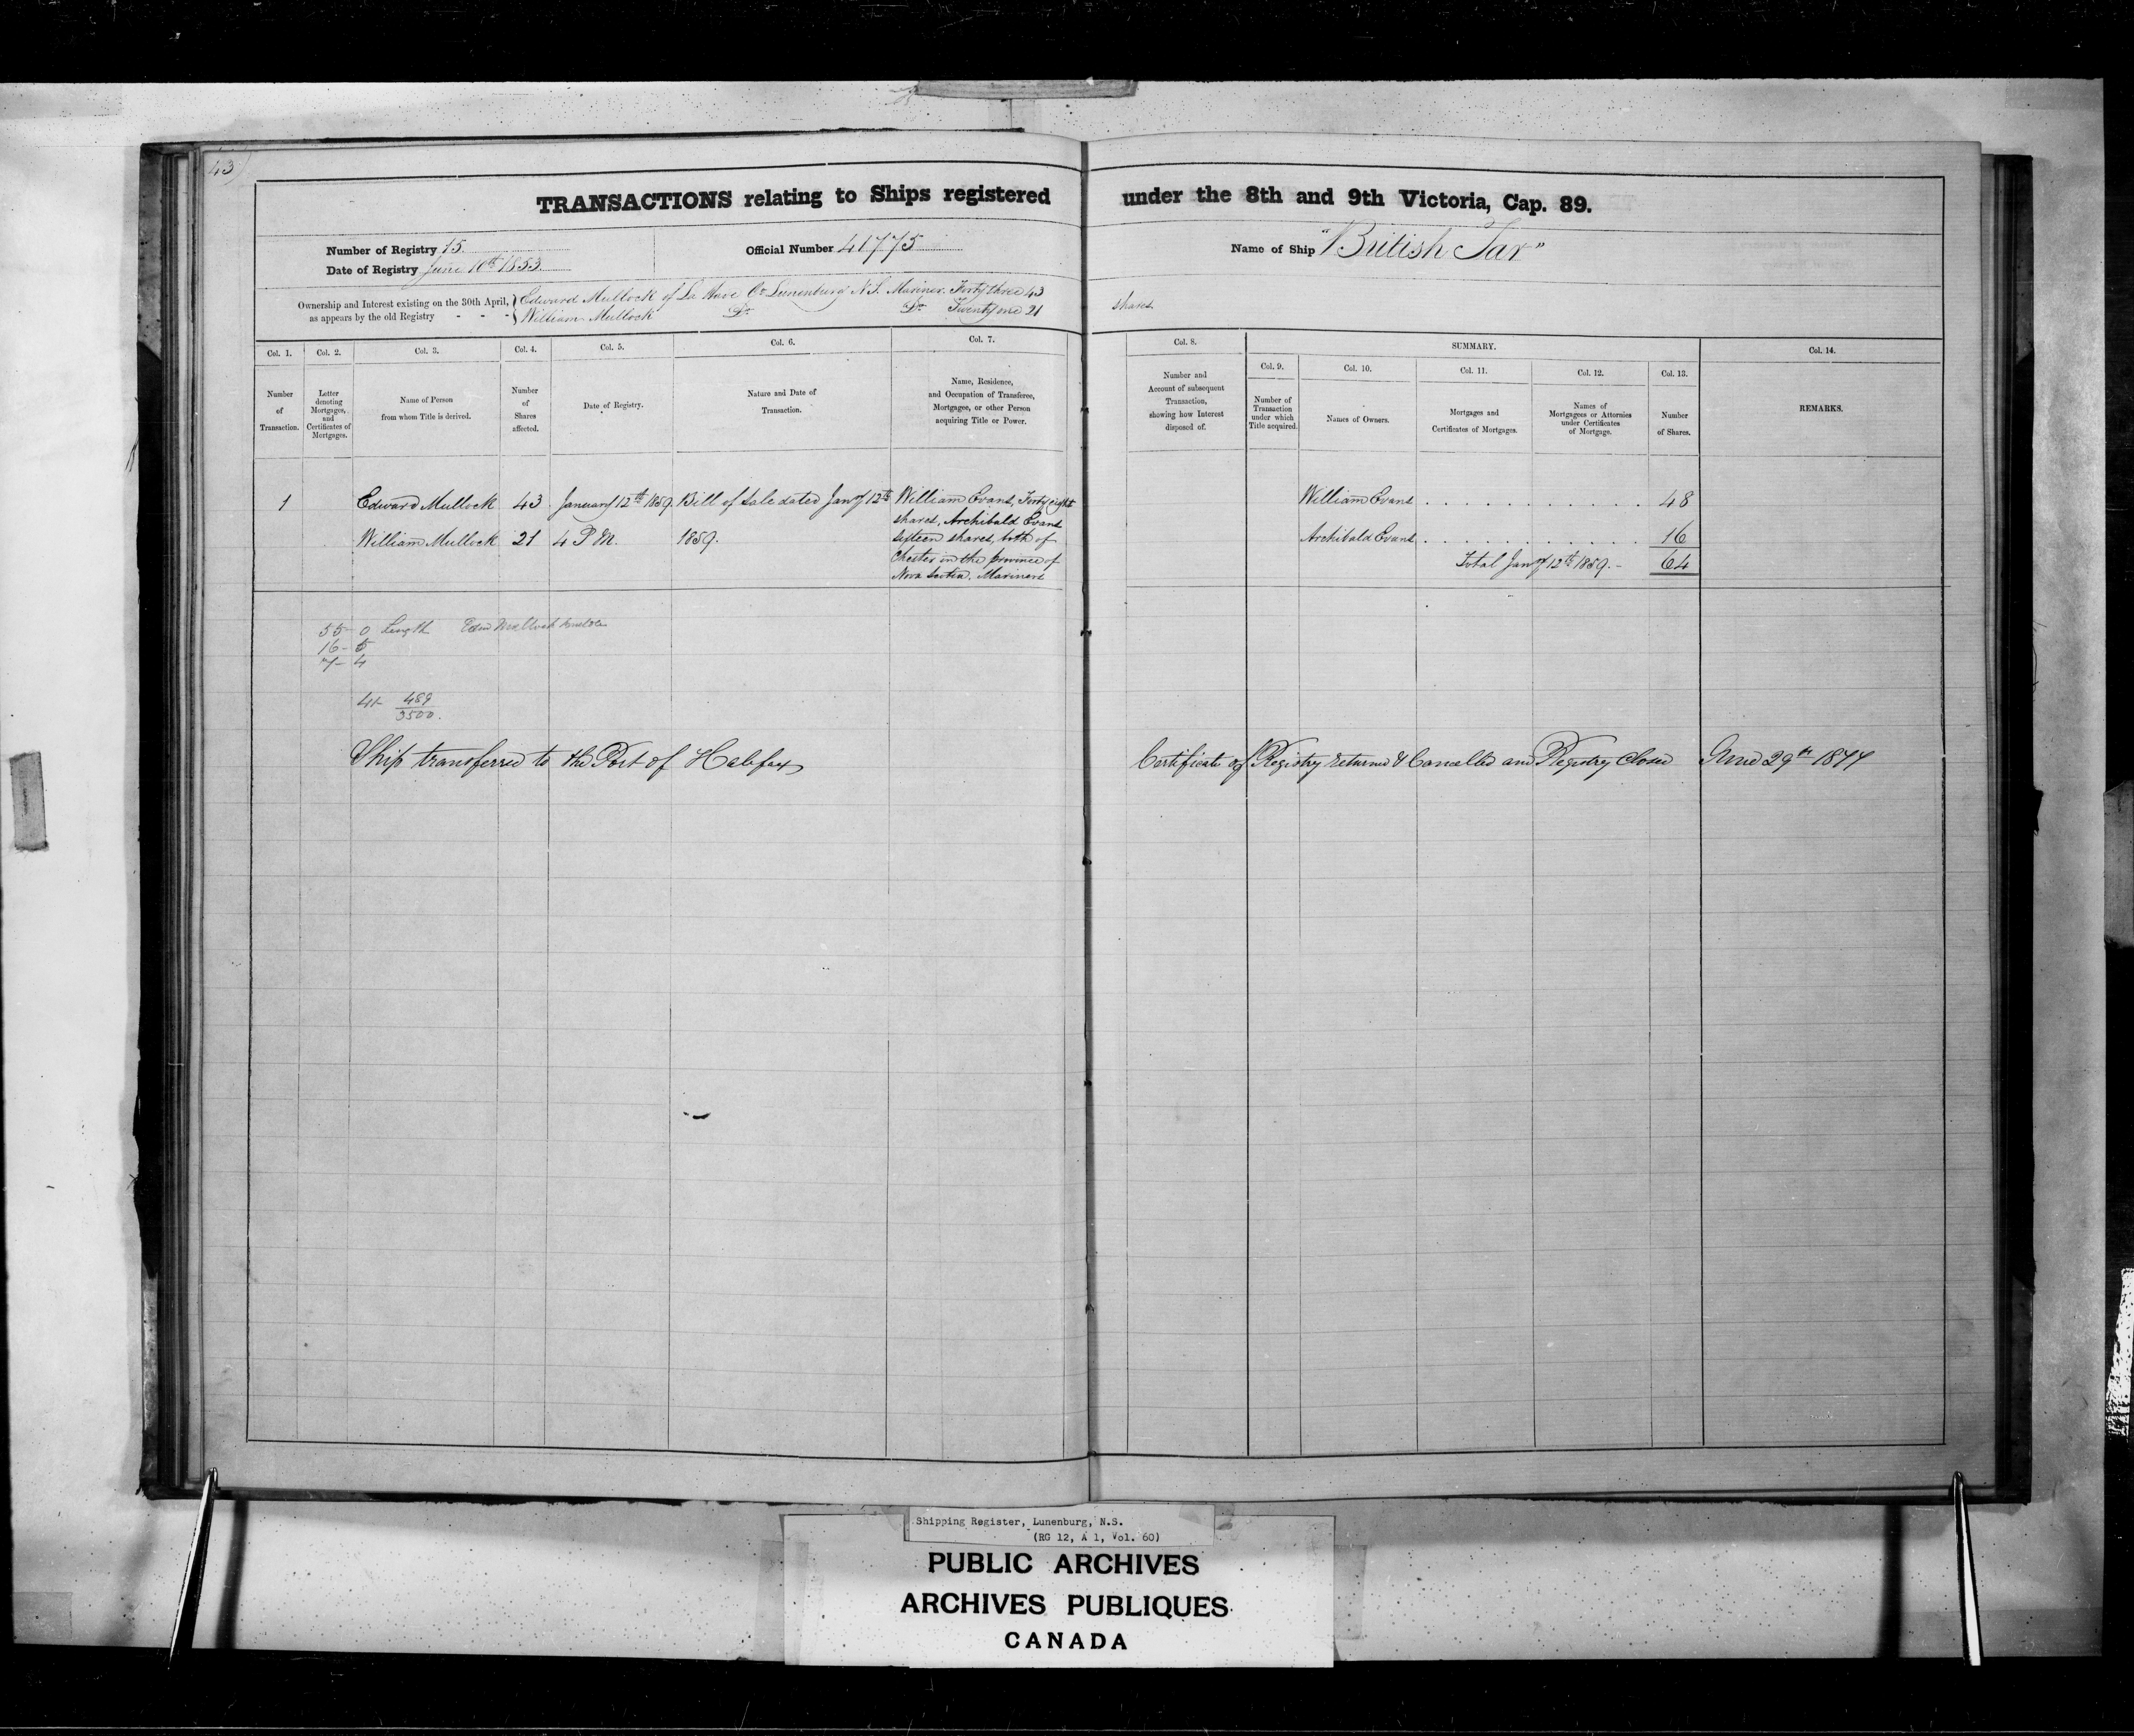 43)
TRANSACTIONS relating to Ships registered under the 8th and 9th Victoria, Cap. 89.
Number of Registry 15.
Date of Registry June 10th 1853.
Official Number 41775
Name of Ship "British Tar"
Ownership and Interest existing on the 30th April, as appears by the old Registry - - -
Edward Mullock of La Have Co. Lunenburg N.S. Mariner. Forty three 43 shares
William Mullock Do. Do. Twenty one 21
Col. 1. Number of Transaction.
Col. 2. Letter denoting Mortgages, and Certificates of Mortgages.
Col. 3. Name of Person from whom Title is derived.
Col. 4. Number of Shares affected.
Col. 5. Date of Registry.
Col. 6. Nature and Date of Transaction.
Col. 7. Name, Residence, and Occupation of Transferee, Mortgagee, or other Person acquiring Title or Power.
Col. 8. Number and Account of subsequent Transaction, showing how Interest disposed of.
SUMMARY.
Col. 9. Number of Transaction under which Title acquired.
Col. 10. Names of Owners.
Col. 11. Mortgages and Certificates of Mortgages.
Col. 12. Names of Mortgagees or Attornies under Certificates of Mortgage.
Col. 13. Number of Shares.
Col. 14. REMARKS.
1 Edward Mullock 43 January 12th 1859. Bill of Sale dated Jany 12th William Evans, Forty eight
shares, Archibald Evans
William Mullock 21 4 P M. 1859. sixteen shares, both of
Chester in the province of
Nova Scotia. Mariners
William Evans . . . . . . . . . . . . 48
Archibald Evans . . . . . . . . . . . . 16
Total Jany 12th 1859. - 64
55- 0 Length Edwd Mullock builder
16- 5
7- 4
41 489/3500.
Ship transferred to the Port of Halifax
Certificate of Registry returned & Cancelled and Registry Closed June 29th 1874
Shipping Register, Lunenburg, N.S.
(RG 12, A 1, Vol. 60)
PUBLIC ARCHIVES
ARCHIVES PUBLIQUES
CANADA